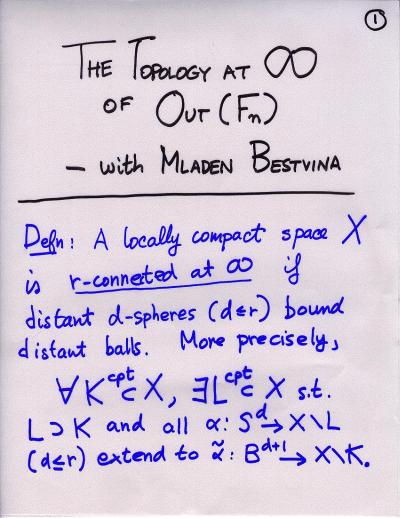 1
THE TOPOLOGY AT ∞
OF OUT(Fₙ)
– with MLADEN BESTVINA
Defn: A locally compact space X
is r-conneted at ∞ if
distant d-spheres (d≤r) bound
distant balls. More precisely,
∀K^cpt ⊂ X, ∃L^cpt ⊂ X s.t.
L ⊃ K and all α: S^d → X\L
(d≤r) extend to α̃: B^{d+1} → X\K.